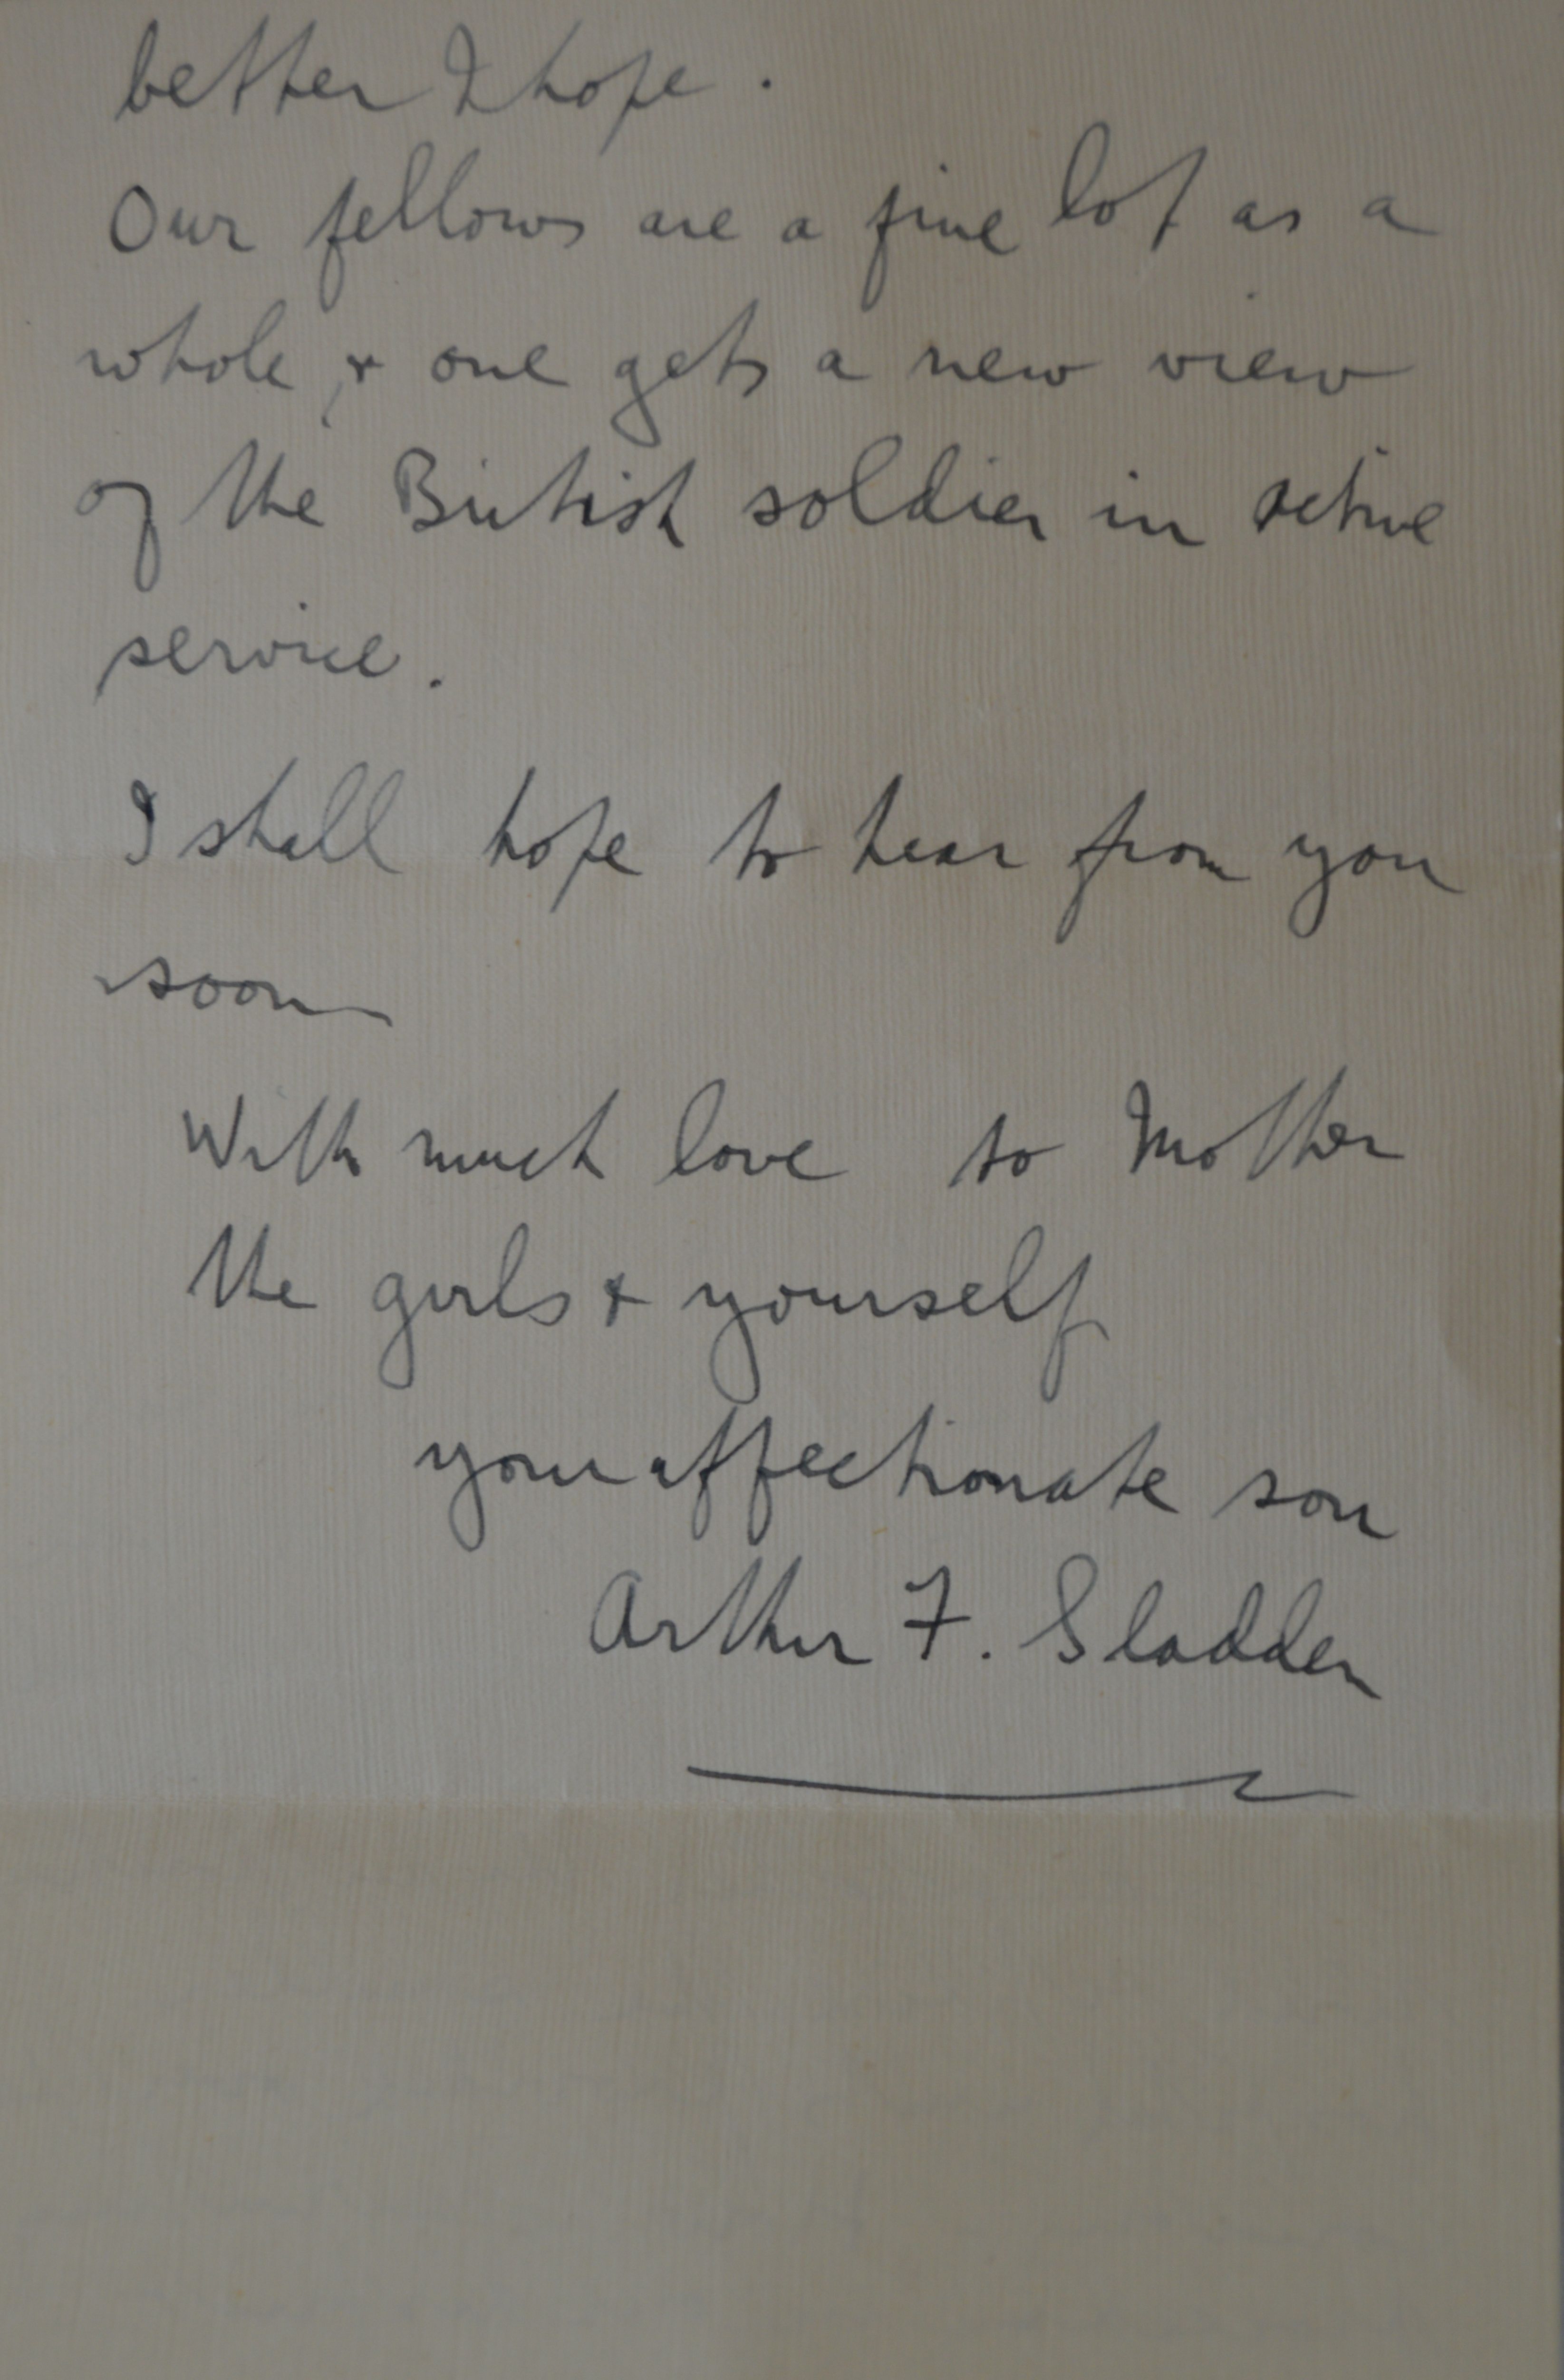 better I hope.
Our fellows are a fine lot as a
whole, & one gets a new view
of the British soldier in active
service.
I shall hope to hear from you
soon
With much love to Mother
the girls & yourself
your affectionate son
Arthur F. Sladden